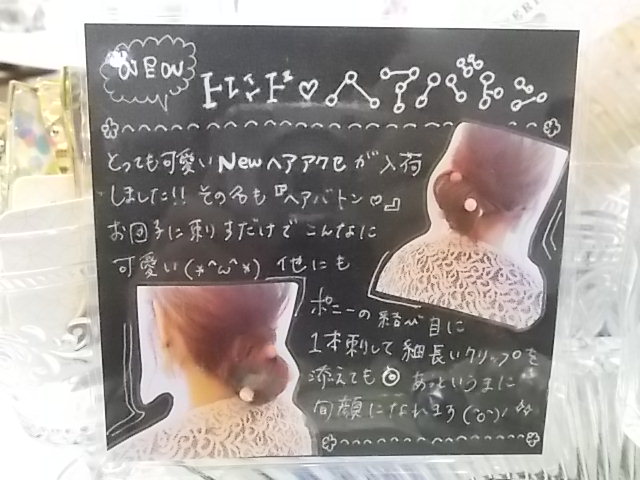 NEW
トレンド♡ヘアアクセ
とっても可愛いNewヘアアクセが入荷
しました!! その名も『ヘアバトン♡』
お団子に刺すだけでこんなに
可愛い(*^ω^*) 他にも
ポニーの結び目に
1本刺して細長いクリップを
添えても◎ あっというまに
旬顔になれます(^o^)/